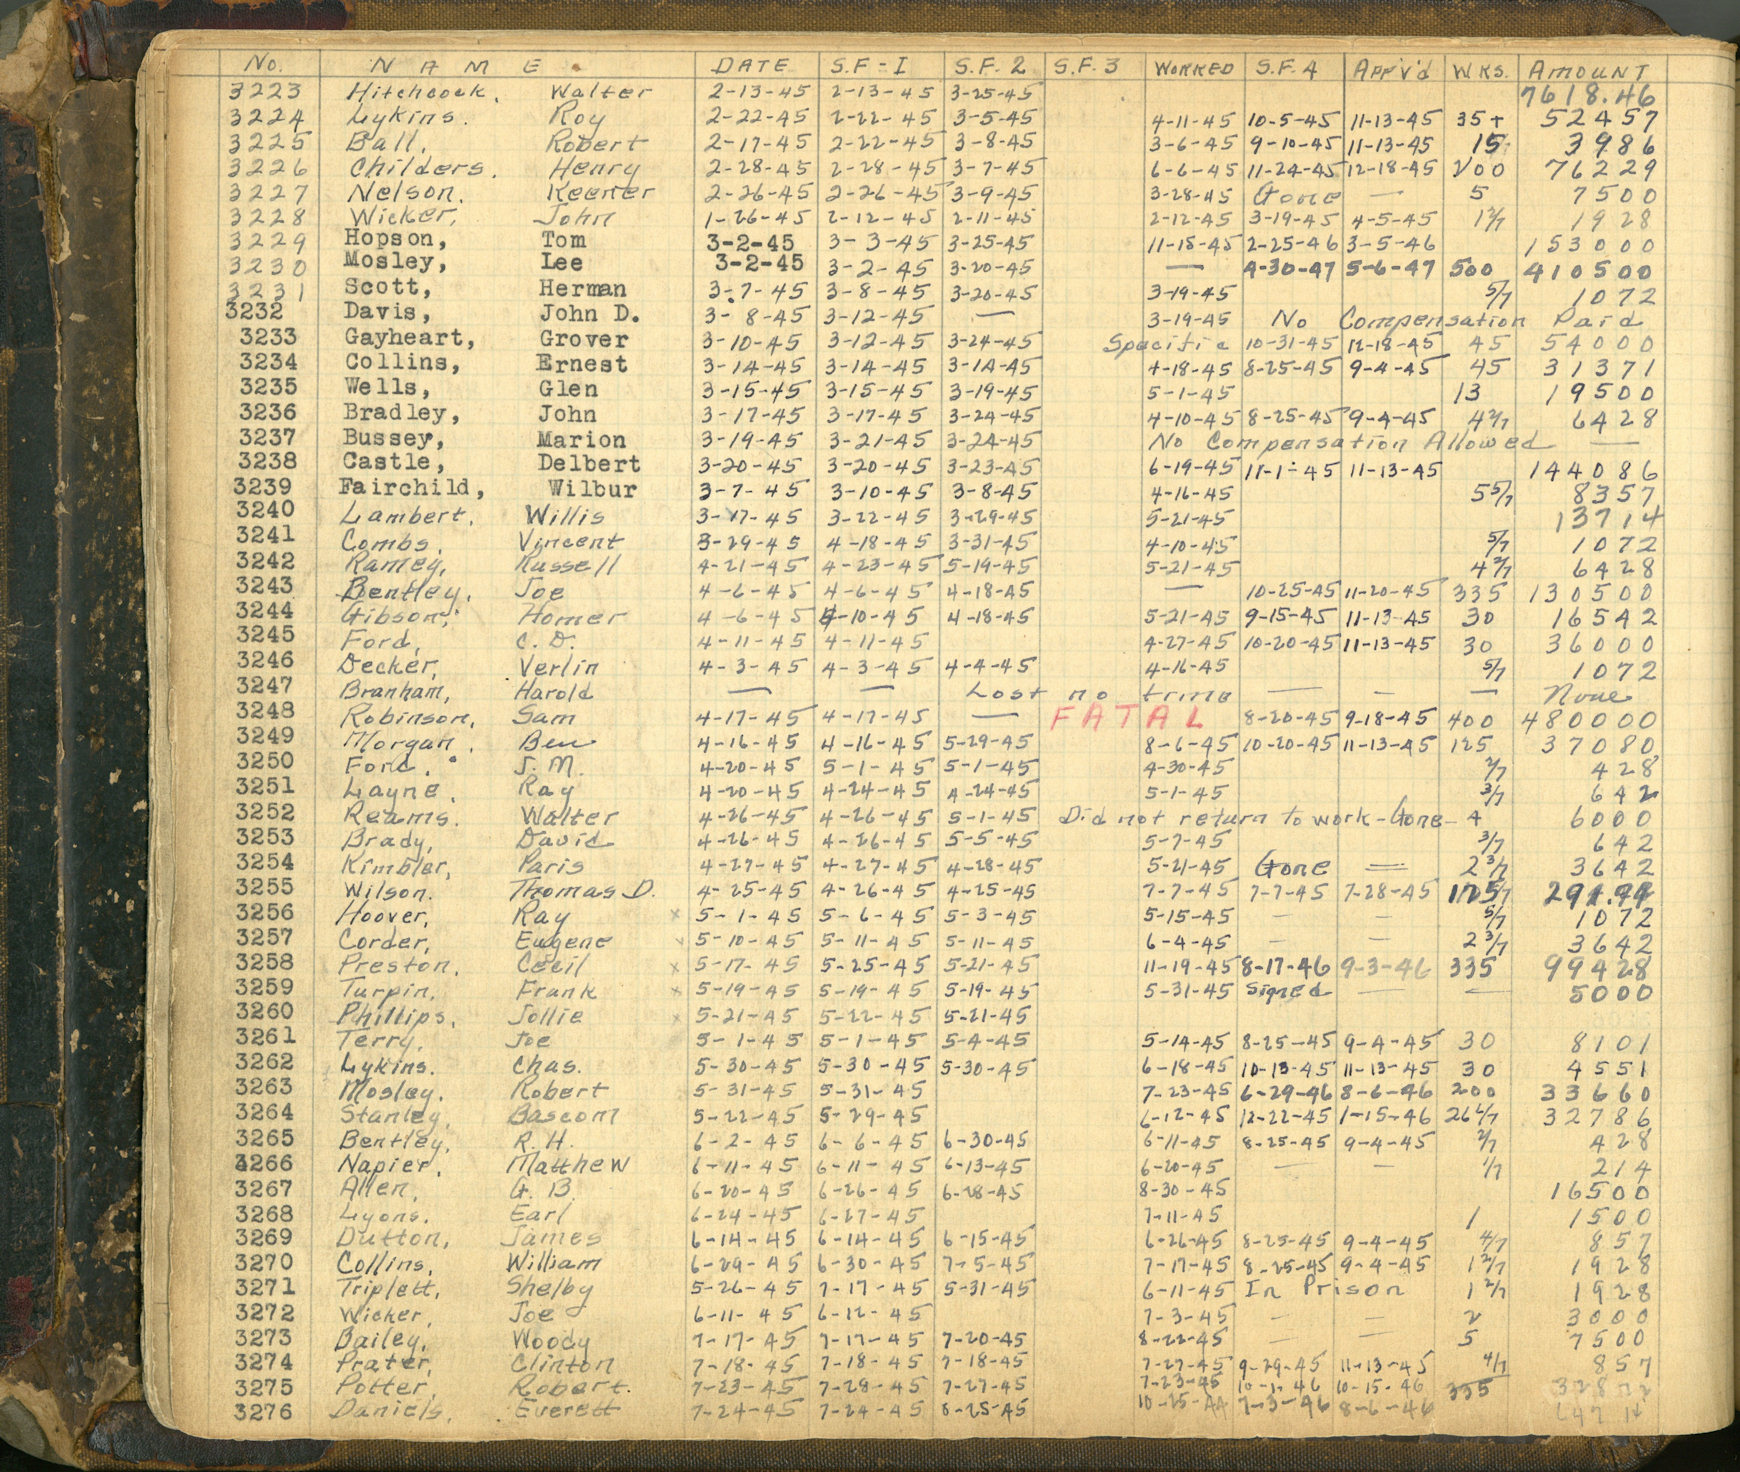 No. NAME DATE S.F-I S.F. 2 S.F. 3 WORKED S.F. 4 APP'V'd WKS. AMOUNT
3223 Hitchcock, Walter 2-13-45 2-13-45 3-25-45 7618.46
3224 Lykins. Roy 2-22-45 2-22-45 3-5-45 4-11-45 10-5-45 11-13-45 35+ 52457
3225 Ball, Robert 2-17-45 2-22-45 3-8-45 3-6-45 9-10-45 11-13-45 15 3986
3226 Childers. Henry 2-28-45 2-28-45 3-7-45 6-6-45 11-24-45 12-18-45 200 76229
3227 Nelson. Keener 2-26-45 2-26-45 3-9-45 3-28-45 Gone — 5 7500
3228 Wicker, John 1-26-45 2-12-45 2-11-45 2-12-45 3-19-45 4-5-45 1 2/7 1928
3229 Hopson, Tom 3-2-45 3-3-45 3-25-45 11-15-45 2-25-46 3-5-46 153000
3230 Mosley, Lee 3-2-45 3-2-45 3-20-45 — 4-30-47 5-6-47 500 410500
3231 Scott, Herman 3-7-45 3-8-45 3-20-45 3-19-45 5/7 1072
3232 Davis, John D. 3-8-45 3-12-45 — 3-19-45 No Compensation Paid
3233 Gayheart, Grover 3-10-45 3-12-45 3-24-45 Specific 10-31-45 12-18-45 45 54000
3234 Collins, Ernest 3-14-45 3-14-45 3-14-45 4-18-45 8-25-45 9-4-45 45 31371
3235 Wells, Glen 3-15-45 3-15-45 3-19-45 5-1-45 13 19500
3236 Bradley, John 3-17-45 3-17-45 3-24-45 4-10-45 8-25-45 9-4-45 4 2/7 6428
3237 Bussey, Marion 3-19-45 3-21-45 3-24-45 No Compensation Allowed —
3238 Castle, Delbert 3-20-45 3-20-45 3-23-45 6-19-45 11-1-45 11-13-45 144086
3239 Fairchild, Wilbur 3-7-45 3-10-45 3-8-45 4-16-45 5 5/7 8357
3240 Lambert, Willis 3-17-45 3-22-45 3-29-45 5-21-45 13714
3241 Combs. Vincent 3-29-45 4-18-45 3-31-45 4-10-45 5/7 1072
3242 Ramey, Russell 4-21-45 4-23-45 5-19-45 5-21-45 4 2/7 6428
3243 Bentley, Joe 4-6-45 4-6-45 4-18-45 — 10-25-45 11-20-45 335 130500
3244 Gibson, Homer 4-6-45 4-10-45 4-18-45 5-21-45 9-15-45 11-13-45 30 16542
3245 Ford, C. D. 4-11-45 4-11-45 4-27-45 10-20-45 11-13-45 30 36000
3246 Decker, Verlin 4-3-45 4-3-45 4-4-45 4-16-45 5/7 1072
3247 Branham, Harold — — Lost no time — — — None
3248 Robinson, Sam 4-17-45 4-17-45 — FATAL 8-20-45 9-18-45 400 480000
3249 Morgan. Ben 4-16-45 4-16-45 5-29-45 8-6-45 10-20-45 11-13-45 125 37080
3250 Ford. J. M. 4-20-45 5-1-45 5-1-45 4-30-45 2/7 428
3251 Layne. Ray 4-20-45 4-24-45 4-24-45 5-1-45 3/7 642
3252 Reams. Walter 4-26-45 4-26-45 5-1-45 Did not return to work-Gone- 4 6000
3253 Brady, David 4-26-45 4-26-45 5-5-45 5-7-45 3/7 642
3254 Kimbler, Paris 4-27-45 4-27-45 4-28-45 5-21-45 Gone — 2 3/7 3642
3255 Wilson. Thomas D. 4-25-45 4-26-45 4-25-45 7-7-45 7-7-45 7-28-45
3256 Hoover, Ray x 5-1-45 5-6-45 5-3-45 5-15-45 — — 5/7 1072
3257 Corder, Eugene x 5-10-45 5-11-45 5-11-45 6-4-45 — — 2 3/7 3642
3258 Preston. Cecil x 5-17-45 5-25-45 5-21-45 11-19-45 8-17-46 9-3-46 335 99428
3259 Turpin. Frank x 5-19-45 5-19-45 5-19-45 5-31-45 Signed — — 5000
3260 Phillips. Jollie x 5-21-45 5-22-45 5-21-45
3261 Terry. Joe 5-1-45 5-1-45 5-4-45 5-14-45 8-25-45 9-4-45 30 8101
3262 Lykins. Chas. 5-30-45 5-30-45 5-30-45 6-18-45 10-13-45 11-13-45 30 4551
3263 Mosley. Robert 5-31-45 5-31-45 7-23-45 6-29-46 8-6-46 200 33660
3264 Stanley, Bascom 5-22-45 5-29-45 6-12-45 12-22-45 1-15-46 26 6/7 32786
3265 Bentley, R. H. 6-2-45 6-6-45 6-30-45 6-11-45 8-25-45 9-4-45 2/7 428
3266 Napier. Matthew 6-11-45 6-11-45 6-13-45 6-20-45 — — 1/7 214
3267 Allen. G. B. 6-20-45 6-26-45 6-28-45 8-30-45 16500
3268 Lyons. Earl 6-24-45 6-27-45 7-11-45 1 1500
3269 Dutton, James 6-14-45 6-14-45 6-15-45 6-26-45 8-25-45 9-4-45 4/7 857
3270 Collins, William 6-29-45 6-30-45 7-5-45 7-17-45 8-25-45 9-4-45 1 2/7 1928
3271 Triplett, Shelby 5-26-45 7-17-45 5-31-45 6-11-45 In Prison 1 2/7 1928
3272 Wicker, Joe 6-11-45 6-12-45 7-3-45 — — 2 3000
3273 Bailey, Woody 7-17-45 7-17-45 7-20-45 8-22-45 — — 5 7500
3274 Prater, Clinton 7-18-45 7-18-45 7-18-45 7-27-45 9-29-45 11-13-45 4/7 857
3275 Potter, Robert. 7-23-45 7-28-45 7-27-45 7-23-45 10-1-46 10-15-46 335
3276 Daniels. Everett 7-24-45 7-24-45 8-25-45 10-25-44 7-3-46 8-6-46